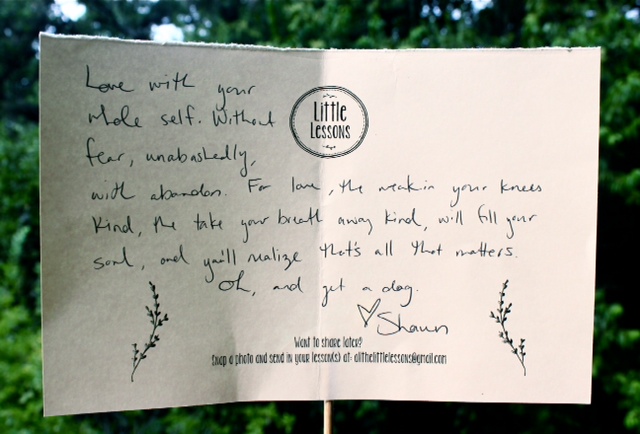 Love with your
whole self. Without
Little
Lessons
fear, unabashedly,
with abandon. For love, the weak in your knees
kind, the take your breath away kind, will fill your
soul, and you'll realize that's all that matters.
Oh, and get a dog.
♡ Shaun
Want to share later?
Snap a photo and send in your lesson(s) at: allthelittlelessons@gmail.com